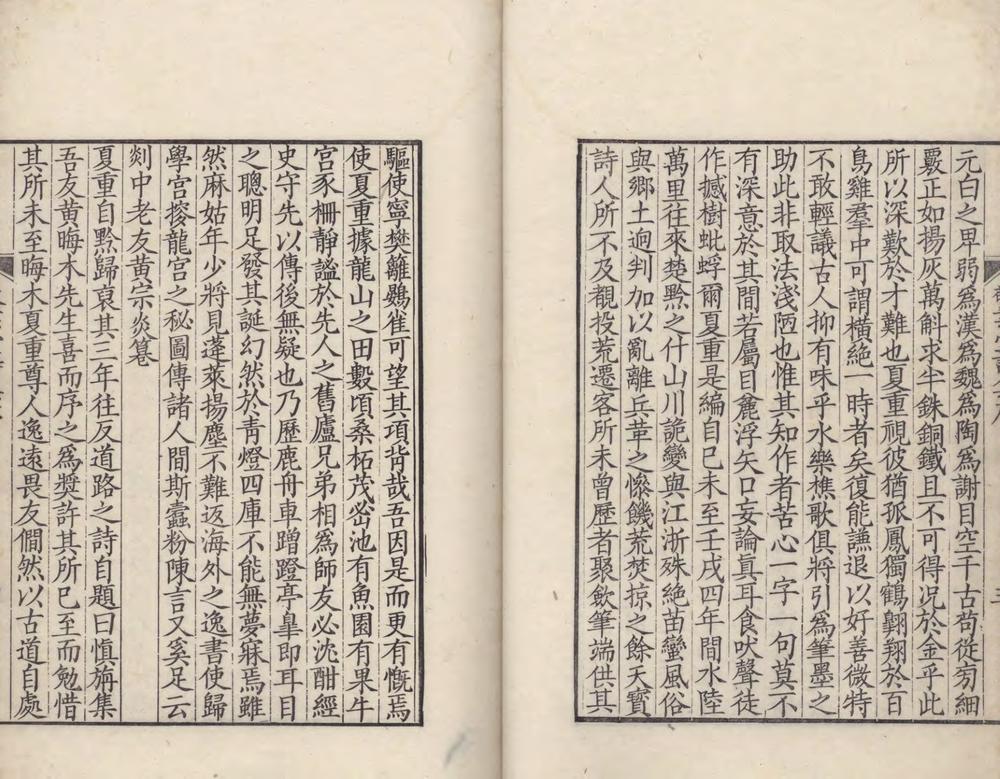 元白之卑弱爲漢爲魏爲陶爲謝目空千古苟從窮細
覈正如揚灰萬斛求半銖銅鐵且不可得况於金乎此
所以深歎於才難也夏重視彼猶孤鳳獨鶴翺翔於百
鳥雞羣中可謂橫絕一時者矣復能謙退以好善微特
不敢輕議古人抑有味乎水樂樵歌俱將引爲筆墨之
助此非取法淺陋也惟其知作者苦心一字一句莫不
有深意於其間若屬目麄浮矢口妄論眞耳食吠聲徒
作撼樹蚍蜉爾夏重是編自己未至壬戌四年間水陸
萬里往來楚黔之什山川詭變與江浙殊絕苗蠻風俗
與鄉土逈判加以亂離兵革之慘饑荒焚掠之餘天寳
詩人所不及覩投荒遷客所未曾歷者聚歛筆端供其
驅使寧樊籬鷃雀可望其項背哉吾因是而更有慨焉
使夏重據龍山之田數頃桑柘茂宻池有魚園有果牛
宮豕柵靜謐於先人之舊廬兄弟相爲師友必沈酣經
史守先以傳後無疑也乃歷鹿舟車蹭蹬亭臯即耳目
之聰明足發其誕幻然於青燈四庫不能無夢寐焉雖
然麻姑年少將見蓬萊揚塵不難返海外之逸書使歸
學宮搜龍宮之秘圖傳諸人間斯蠹粉陳言又奚足云
剡中老友黃宗炎篹
夏重自黔歸裒其三年往反道路之詩自題曰愼旃集
吾友黃晦木先生喜而序之爲奬許其所已至而勉惜
其所未至晦木夏重尊人逸遠畏友僩然以古道自處